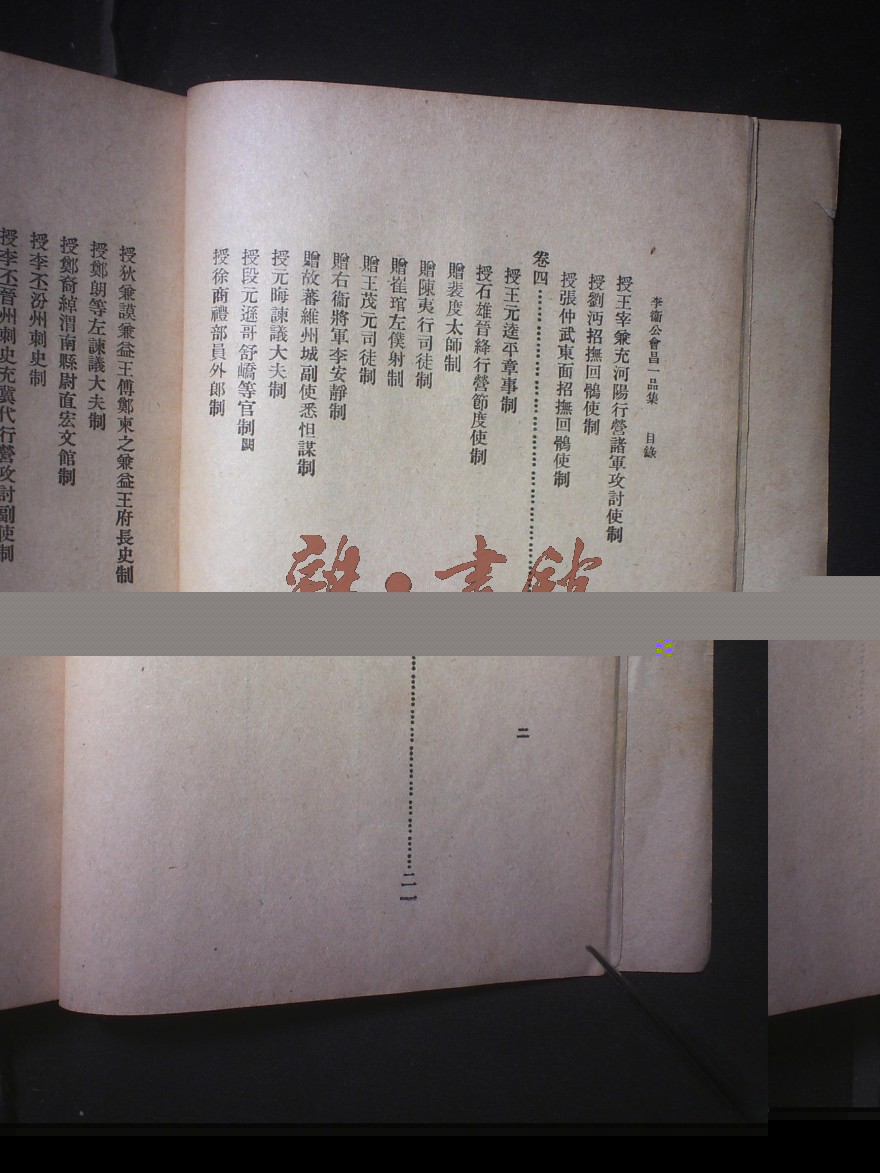 李衞公會昌一品集　目錄
授王宰兼充河陽行營諸軍攻討使制
授劉沔招撫回鶻使制
授張仲武東面招撫回鶻使制
卷四……二一
授王元逵平章事制
授石雄晉絳行營節度使制
贈裴度太師制
贈陳夷行司徒制
贈崔琯左僕射制
贈王茂元司徒制
贈右衞將軍李安靜制
贈故蕃維州城副使悉怛謀制
授元晦諫議大夫制
授段元遜哥舒嶠等官制闕
授徐商禮部員外郎制
二
授狄兼謨兼益王傅鄭柬之兼益王府長史制
授鄭朗等左諫議大夫制
授鄭裔綽渭南縣尉直宏文館制
授李丕汾州刺史制
授李丕晉州刺史充冀代行營攻討副使制